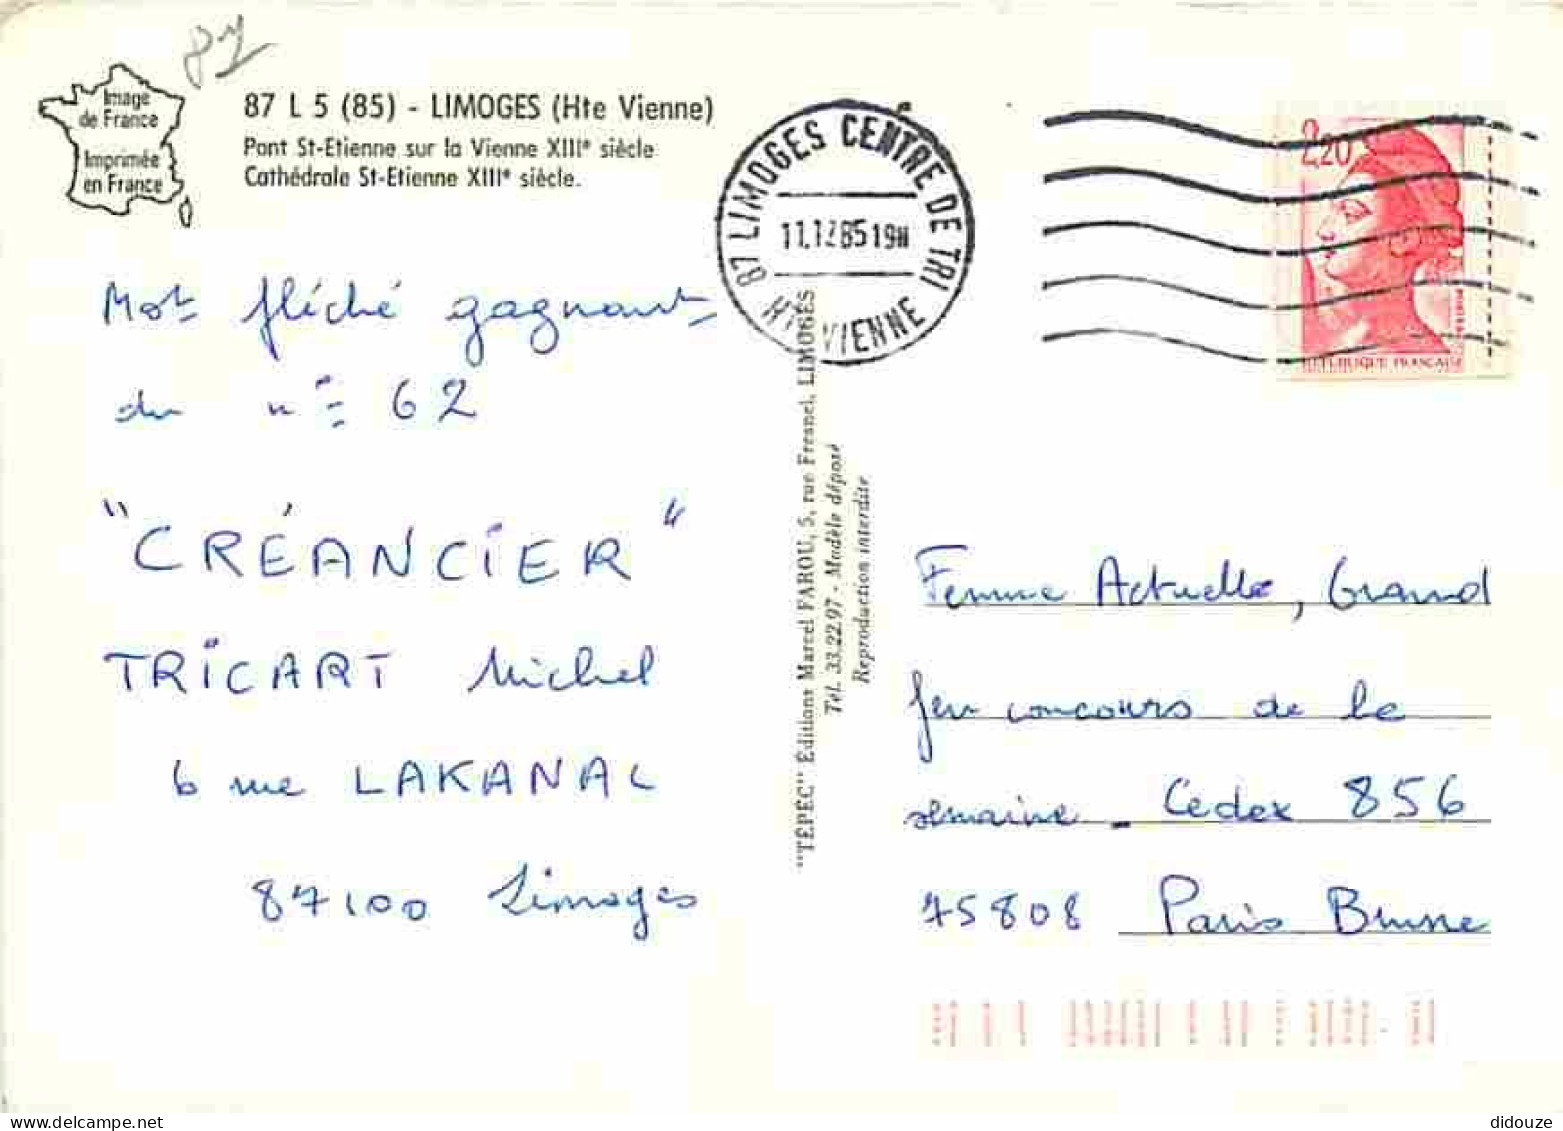 87
Image
de France
Imprimée
en France
87 L 5 (85) - LIMOGES (Hte Vienne)
Pont St-Etienne sur la Vienne XIIIe siècle
Cathédrale St-Etienne XIIIe siècle.
87 LIMOGES CENTRE DE TRI
11.12 85 19H
HTE VIENNE
2,20
REPUBLIQUE FRANÇAISE
Mot fléché gagnant
du n° 62
"CRÉANCIER"
TRICART Michel
6 rue LAKANAL
87100 Limoges
"TÉPÉC" Éditions Marcel FAROU, 5, rue Fresnel, LIMOGES
Tél. 33.22.97 - Modèle déposé
Reproduction interdite
Femme Actuelle, Grand
Jeu concours de la
semaine - Cedex 856
75808 Paris Brune
didouze